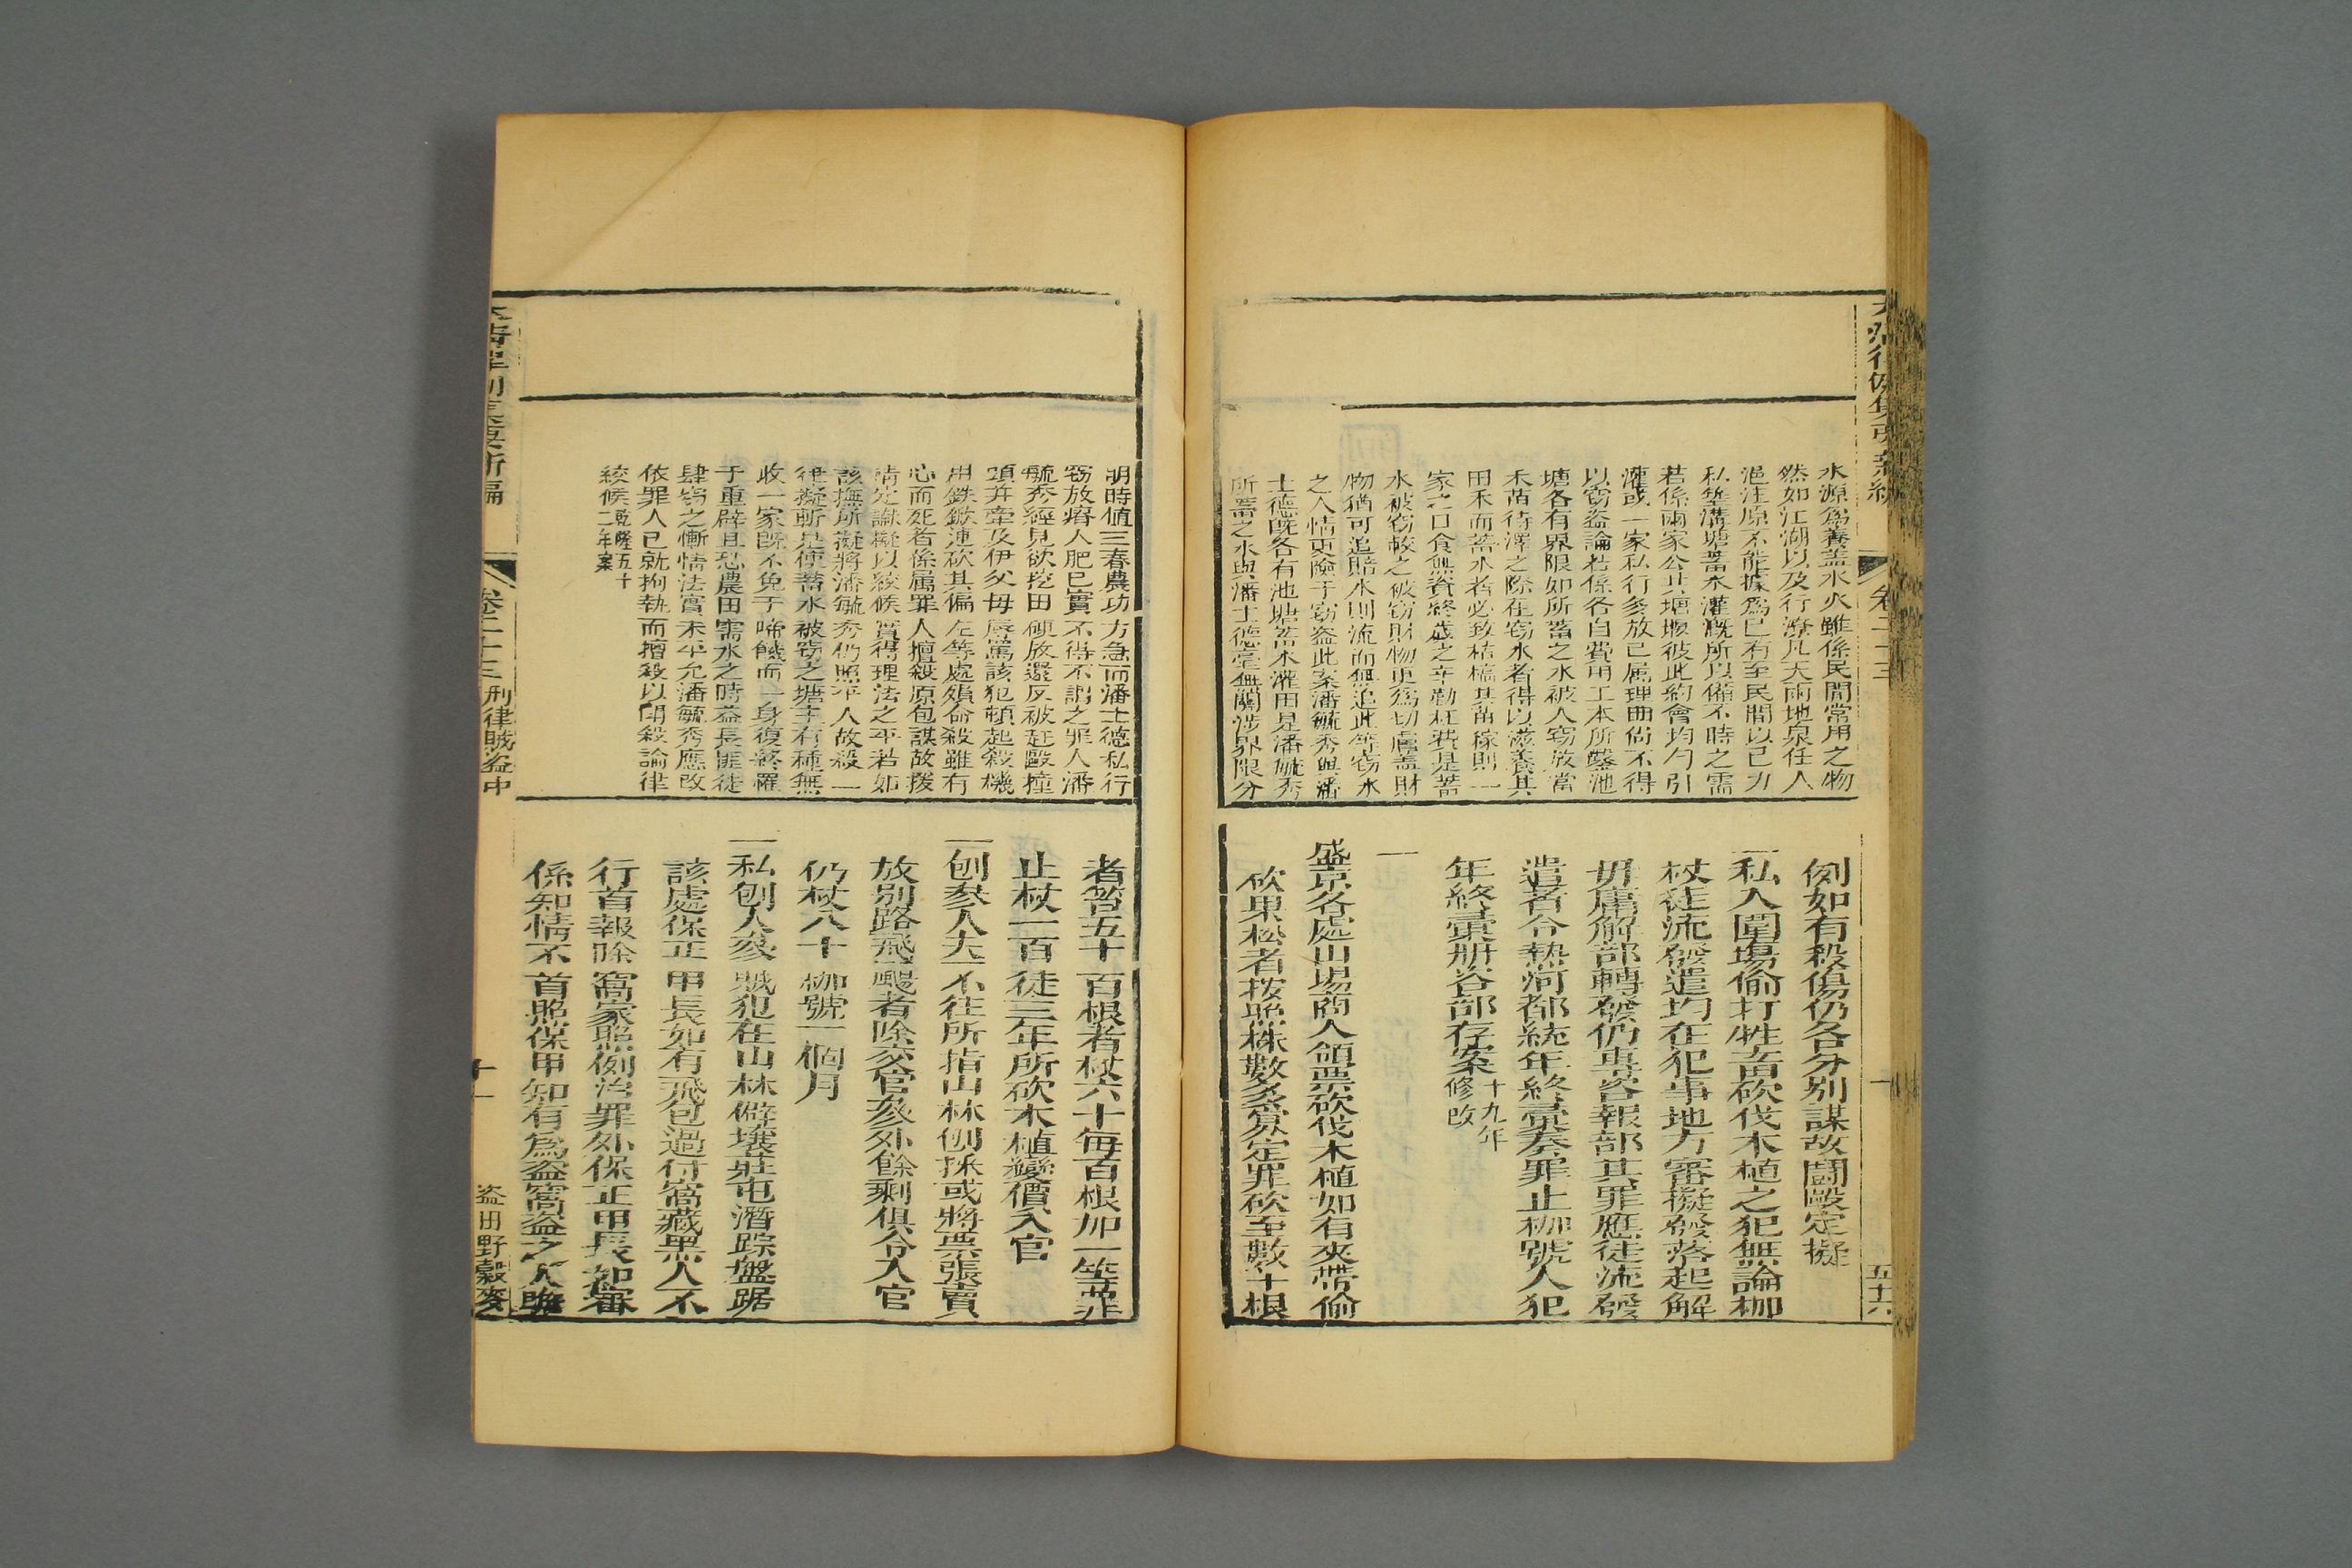 水源爲養盖水火雖係民間常用之物
然如江湖以及行潦凡天雨地泉任人
挹注原不能據爲已有至民間以己力
私築溝塘蓄水灌漑所以備不時之需
若係兩家公共塘堰彼此約會均勻引
灌或一家私行多放已属理曲尙不得
以竊盗論若係各自費用工本所鑿池
塘各有界限如所蓄之水被人竊放當
禾苗待澤之際在竊水者得以滋養其
田禾而蓄水者必致枯槁其苗稼則一
家之口食無資終歲之辛勤枉費是蓄
水被竊較之被竊財物更爲切膚盖財
物猶可追賠水則流而無追此等竊水
之人情更險于竊盗此案潘毓秀與潘
士德旣各有池塘蓄水灌田是潘毓秀
所蓄之水與潘士德毫無關涉界限分
例如有殺傷仍各分別謀故鬪毆定擬
一私入圍塲偷打牲畜砍伐木植之犯無論枷
杖徒流發遣均在犯事地方審擬發落起解
毋庸解部轉發仍專咨報部其罪應徒流發
遣者令熱河都統年終彙奏罪止枷號人犯
年終彙册咨部存案十九年修改
一
盛京各處山塲商人領票砍伐木植如有夾帶偷
砍果松者按照株數多寡定罪砍至數十根
卷二十三
五十六
明時値三春農功方急而潘士德私行
竊放瘠人肥已實不得不謂之罪人潘
毓秀經見欲挖田傾放還反被赶毆撞
頭并牽及伊父母辱駡該犯頓起殺機
用鉄鍁連砍其偏左等處殞命殺雖有
心而死者係属罪人擅殺原包謀故援
情定讞擬以絞候實得理法之平若如
該撫所擬將潘毓秀仍照平人故殺一
律擬斬是使蓄水被竊之塘主有種無
收一家旣不免于啼饑而一身復終罹
于重辟且恐農田需水之時益長匪徒
肆竊之慚情法實未平允潘毓秀應改
依罪人已就拘執而擅殺以鬪殺論律
絞候乾隆五十二年案
者笞五十百根者杖六十每百根加一等罪
止杖一百徒三年所砍木植變價入官
一刨參人夫不往所指山林刨採或將票張賣
放別路飛颺者除交官參外餘剩俱令入官
仍杖八十枷號一個月
一私刨人參賊犯在山林僻壤莊屯潛踪盤踞
該處保正甲長如有飛包過付窩藏黑人不
行首報除窩家照例治罪外保正甲長如審
係知情不首照保甲知有爲盗窩盗之人
卷二十三
刑律賊盗中
十一
盗田野穀麥